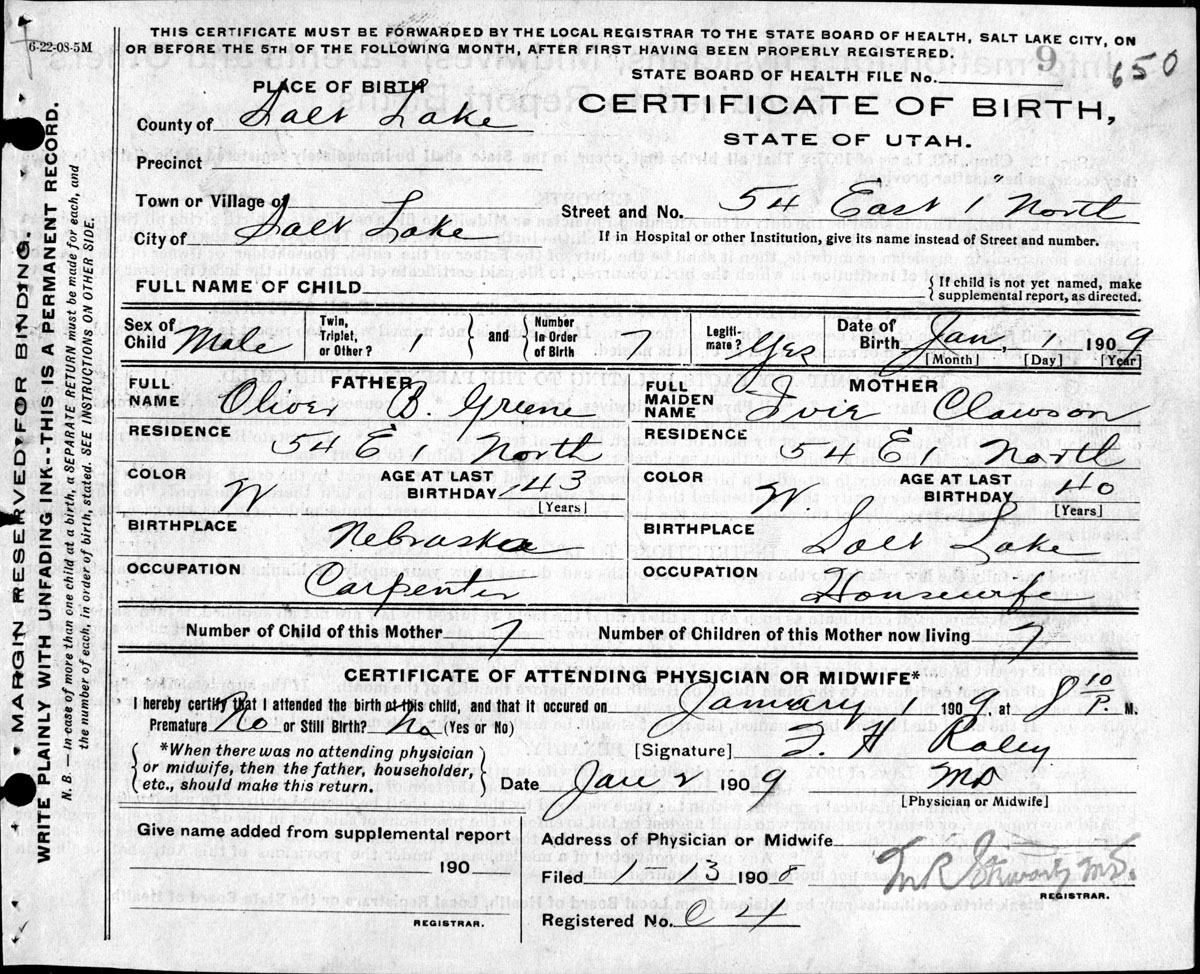 6-22-08-5M
THIS CERTIFICATE MUST BE FORWARDED BY THE LOCAL REGISTRAR TO THE STATE BOARD OF HEALTH, SALT LAKE CITY, ON
OR BEFORE THE 5TH OF THE FOLLOWING MONTH, AFTER FIRST HAVING BEEN PROPERLY REGISTERED.
STATE BOARD OF HEALTH FILE No. 9 650
PLACE OF BIRTH
CERTIFICATE OF BIRTH,
STATE OF UTAH.
County of Salt Lake
Precinct
Town or Village of
Street and No. 54 East 1" North
City of Salt Lake
If in Hospital or other Institution, give its name instead of Street and number.
FULL NAME OF CHILD
{ If child is not yet named, make
supplemental report, as directed.
Sex of Child Male Twin, Triplet, or Other? 1 } and { Number in Order of Birth 7 Legiti-mate? Yes Date of Birth Jan, 1 1909
[Month] [Day] [Year]
FATHER
FULL NAME Oliver B. Greene
RESIDENCE
54 E 1 North
COLOR W AGE AT LAST BIRTHDAY 43
[Years]
BIRTHPLACE
Nebraska
OCCUPATION
Carpenter
MOTHER
FULL MAIDEN NAME Ivie Clawson
RESIDENCE
54 E 1 North
COLOR W. AGE AT LAST BIRTHDAY 40
[Years]
BIRTHPLACE
Salt Lake
OCCUPATION
Housewife
Number of Child of this Mother 7 Number of Children of this Mother now living 7
CERTIFICATE OF ATTENDING PHYSICIAN OR MIDWIFE*
I hereby certify that I attended the birth of this child, and that it occured on January 1909, at 8 10/P. M.
Premature No or Still Birth? No (Yes or No)
{ *When there was no attending physician
or midwife, then the father, householder,
etc., should make this return. }
[Signature] F H Raley
Date Jan 2 1909 MD
[Physician or Midwife]
Give name added from supplemental report
190
REGISTRAR.
Address of Physician or Midwife
Filed 1 3 1908
REGISTRAR.
Registered No. C 4
MARGIN RESERVED FOR BINDING.
WRITE PLAINLY WITH UNFADING INK---THIS IS A PERMANENT RECORD.
N. B. — In case of more than one child at a birth, a SEPARATE RETURN must be made for each, and
the number of each, in order of birth, stated. SEE INSTRUCTIONS ON OTHER SIDE.